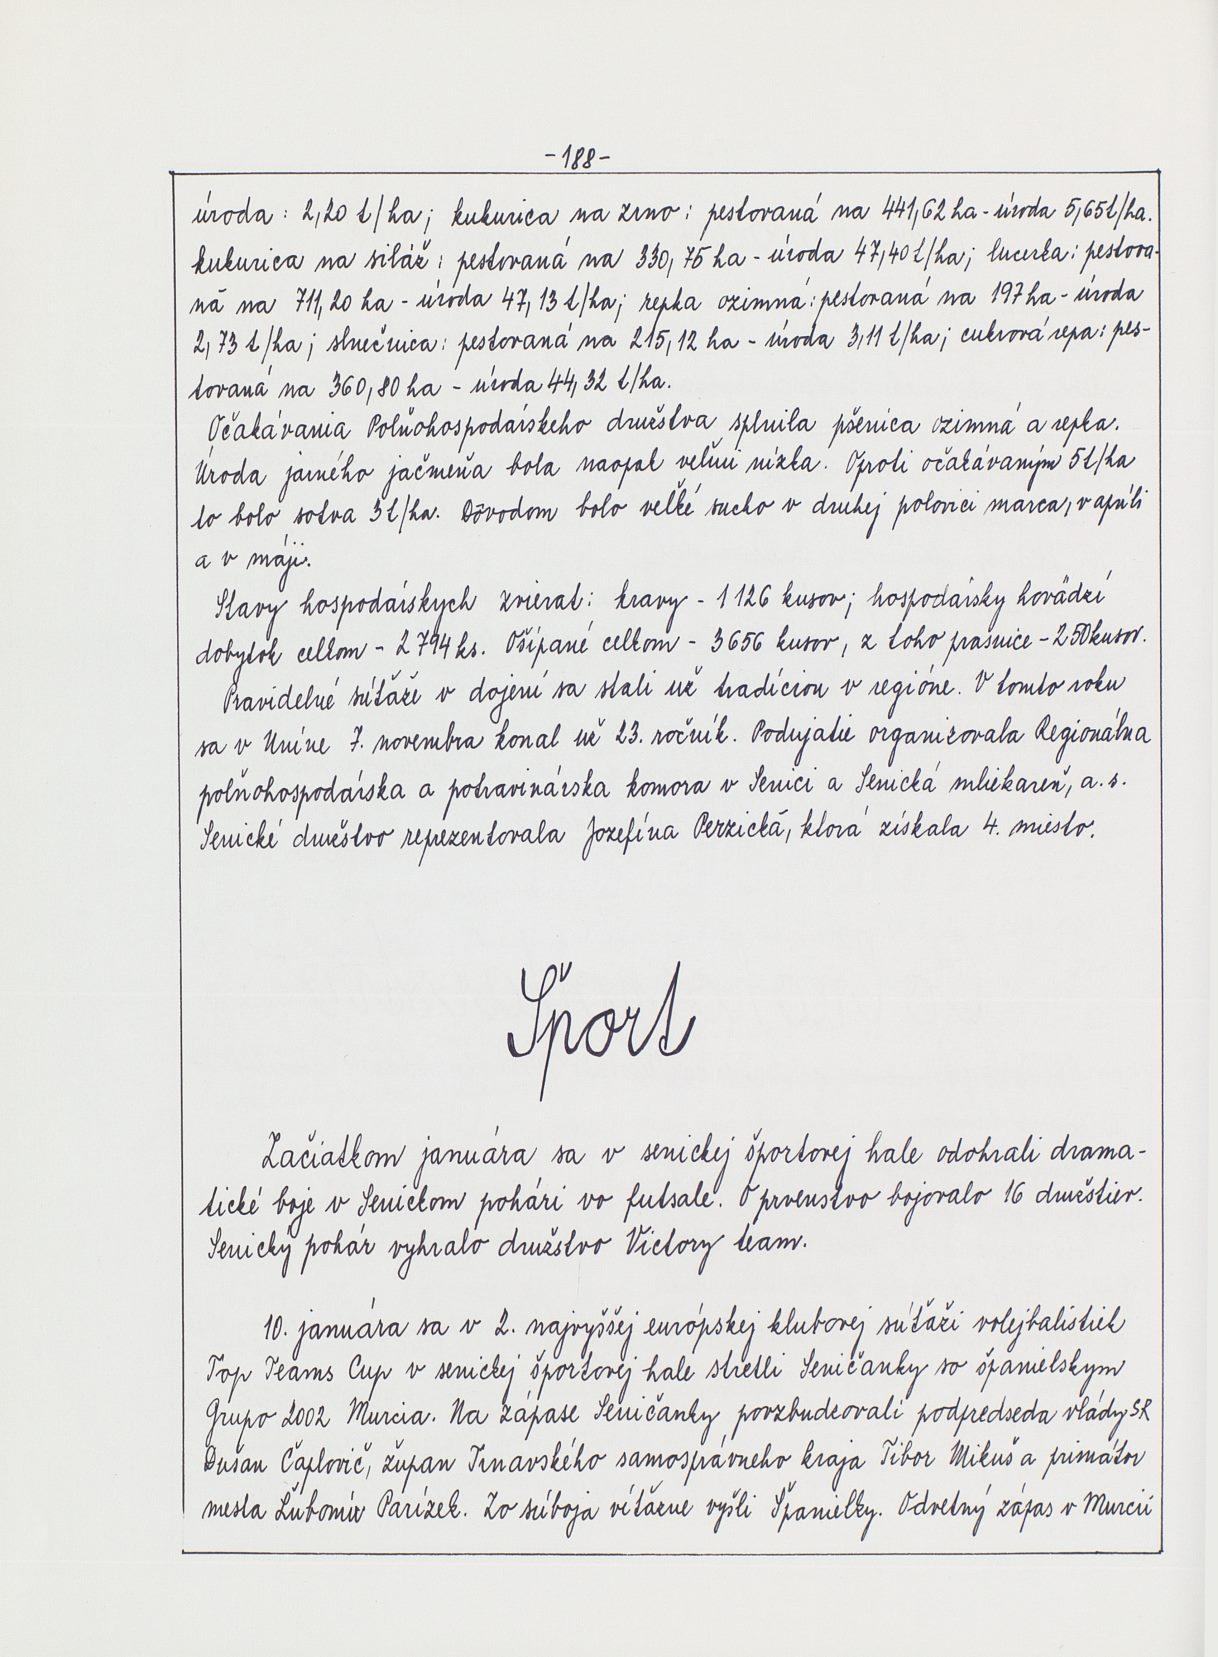 -188-
úroda: 2,20 t/ha; kukurica na zrno: pestovaná na 441,62 ha - úroda 5,65t/ha.
kukurica na siláž: pestovaná na 330,75 ha - úroda 47,40 t/ha; lucerka: pestova-
ná na 711,20 ha - úroda 47,13 t/ha; repka ozimná: pestovaná na 197 ha - úroda
2,73 t/ha; slnečnica: pestovaná na 215,12 ha - úroda 3,11 t/ha; cukrová repa: pes-
tovaná na 360,80 ha - úroda 44,32 t/ha.
Očakávania Poľnohospodárskeho družstva splnila pšenica ozimná a repka.
Úroda jarného jačmeňa bola naopak veľmi nízka. Oproti očakávaným 5t/ha
to bolo sotva 3t/ha. Dôvodom bolo veľké sucho v druhej polovici marca, v apríli
a v máji.
Stavy hospodárskych zvierat: kravy - 1 126 kusov; hospodársky hovädzí
dobytok celkom - 2 794 ks. Ošípané celkom - 3 656 kusov, z toho prasnice - 250 kusov.
Pravidelné súťaže v dojení sa stali už tradíciou v regióne. V tomto roku
sa v Uníne 7. novembra konal už 23. ročník. Podujatie organizovala Regionálna
poľnohospodárska a potravinárska komora v Senici a Senická mliekareň, a. s.
Senické družstvo reprezentovala Jozefína Perzická, ktorá získala 4. miesto.
Šport
Začiatkom januára sa v senickej športovej hale odohrali drama-
tické boje v Senickom pohári vo futsale. O prvenstvo bojovalo 16 družstiev.
Senický pohár vyhralo družstvo Victory team.
10. januára sa v 2. najvyššej európskej klubovej súťaži volejbalistiek
Top Teams Cup v senickej športovej hale stretli Seničanky so španielskym
Grupo 2002 Murcia. Na zápase Seničanky povzbudzovali podpredseda vlády SR
Dušan Čaplovič, župan Trnavského samosprávneho kraja Tibor Mikuš a primátor
mesta Ľubomír Parízek. Zo súboja víťazne vyšli Španielky. Odvetný zápas v Murcii